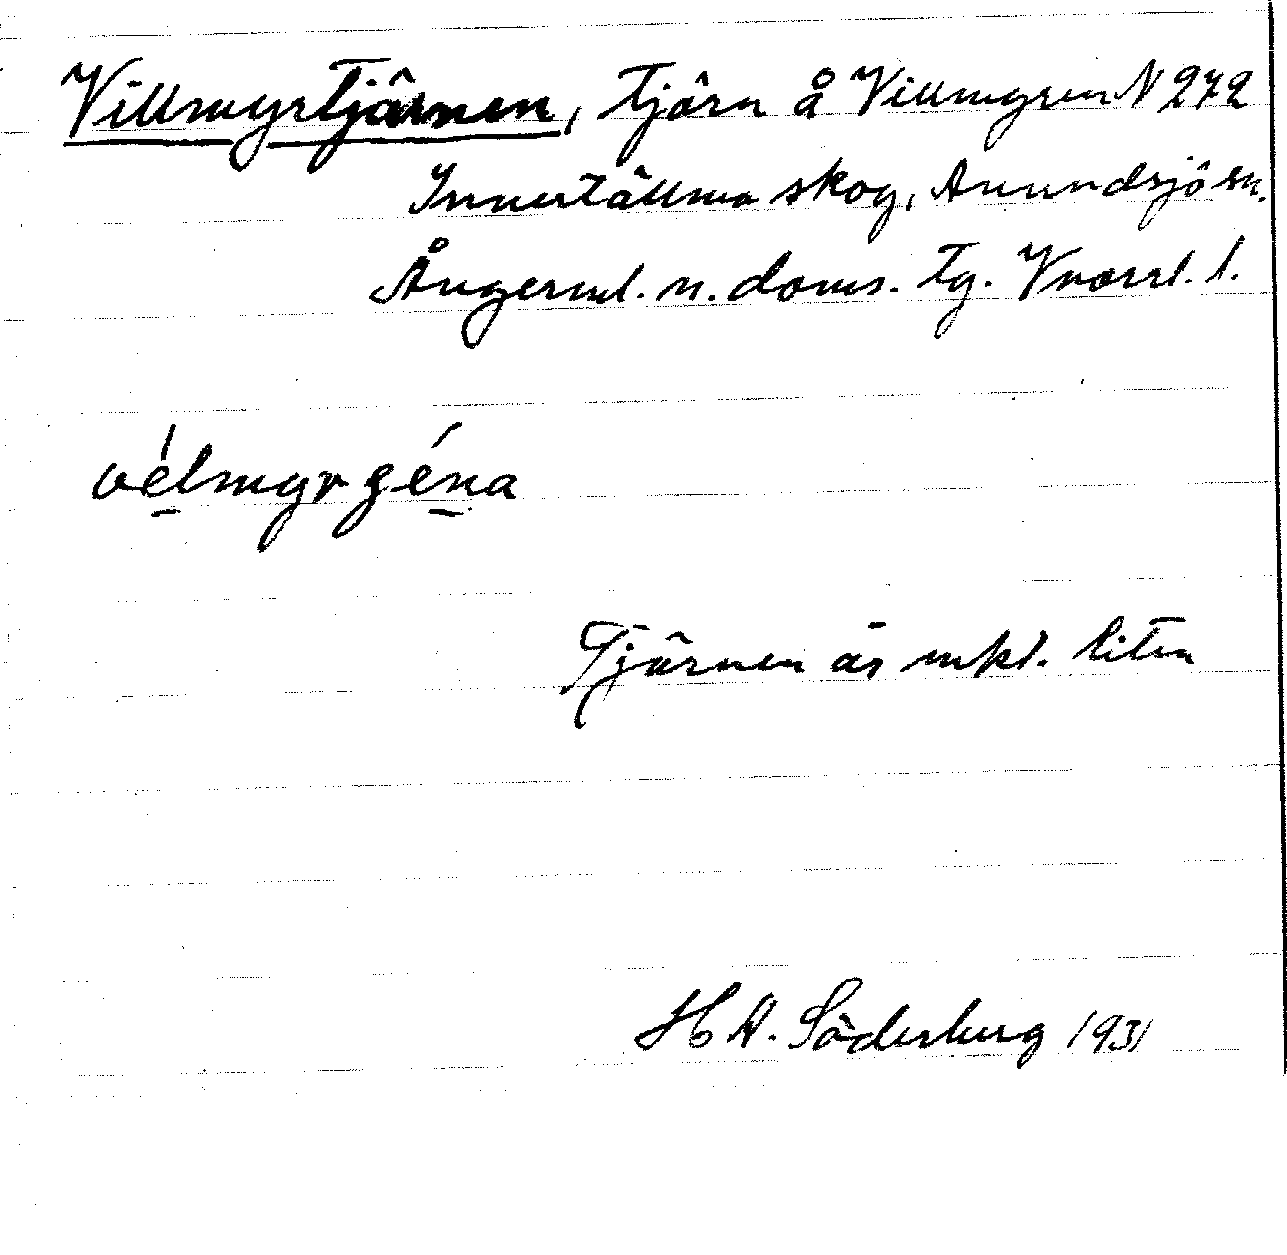 Villmyrtjärnen, tjärn å Villmyren N 272
Innertällmo skog, Anundsjö sn.
Ångerml. n. doms. tg. Vnorrl. l.
vélmyrǥéna
Tjärnen är mkt. liten
H A. Söderberg 1931